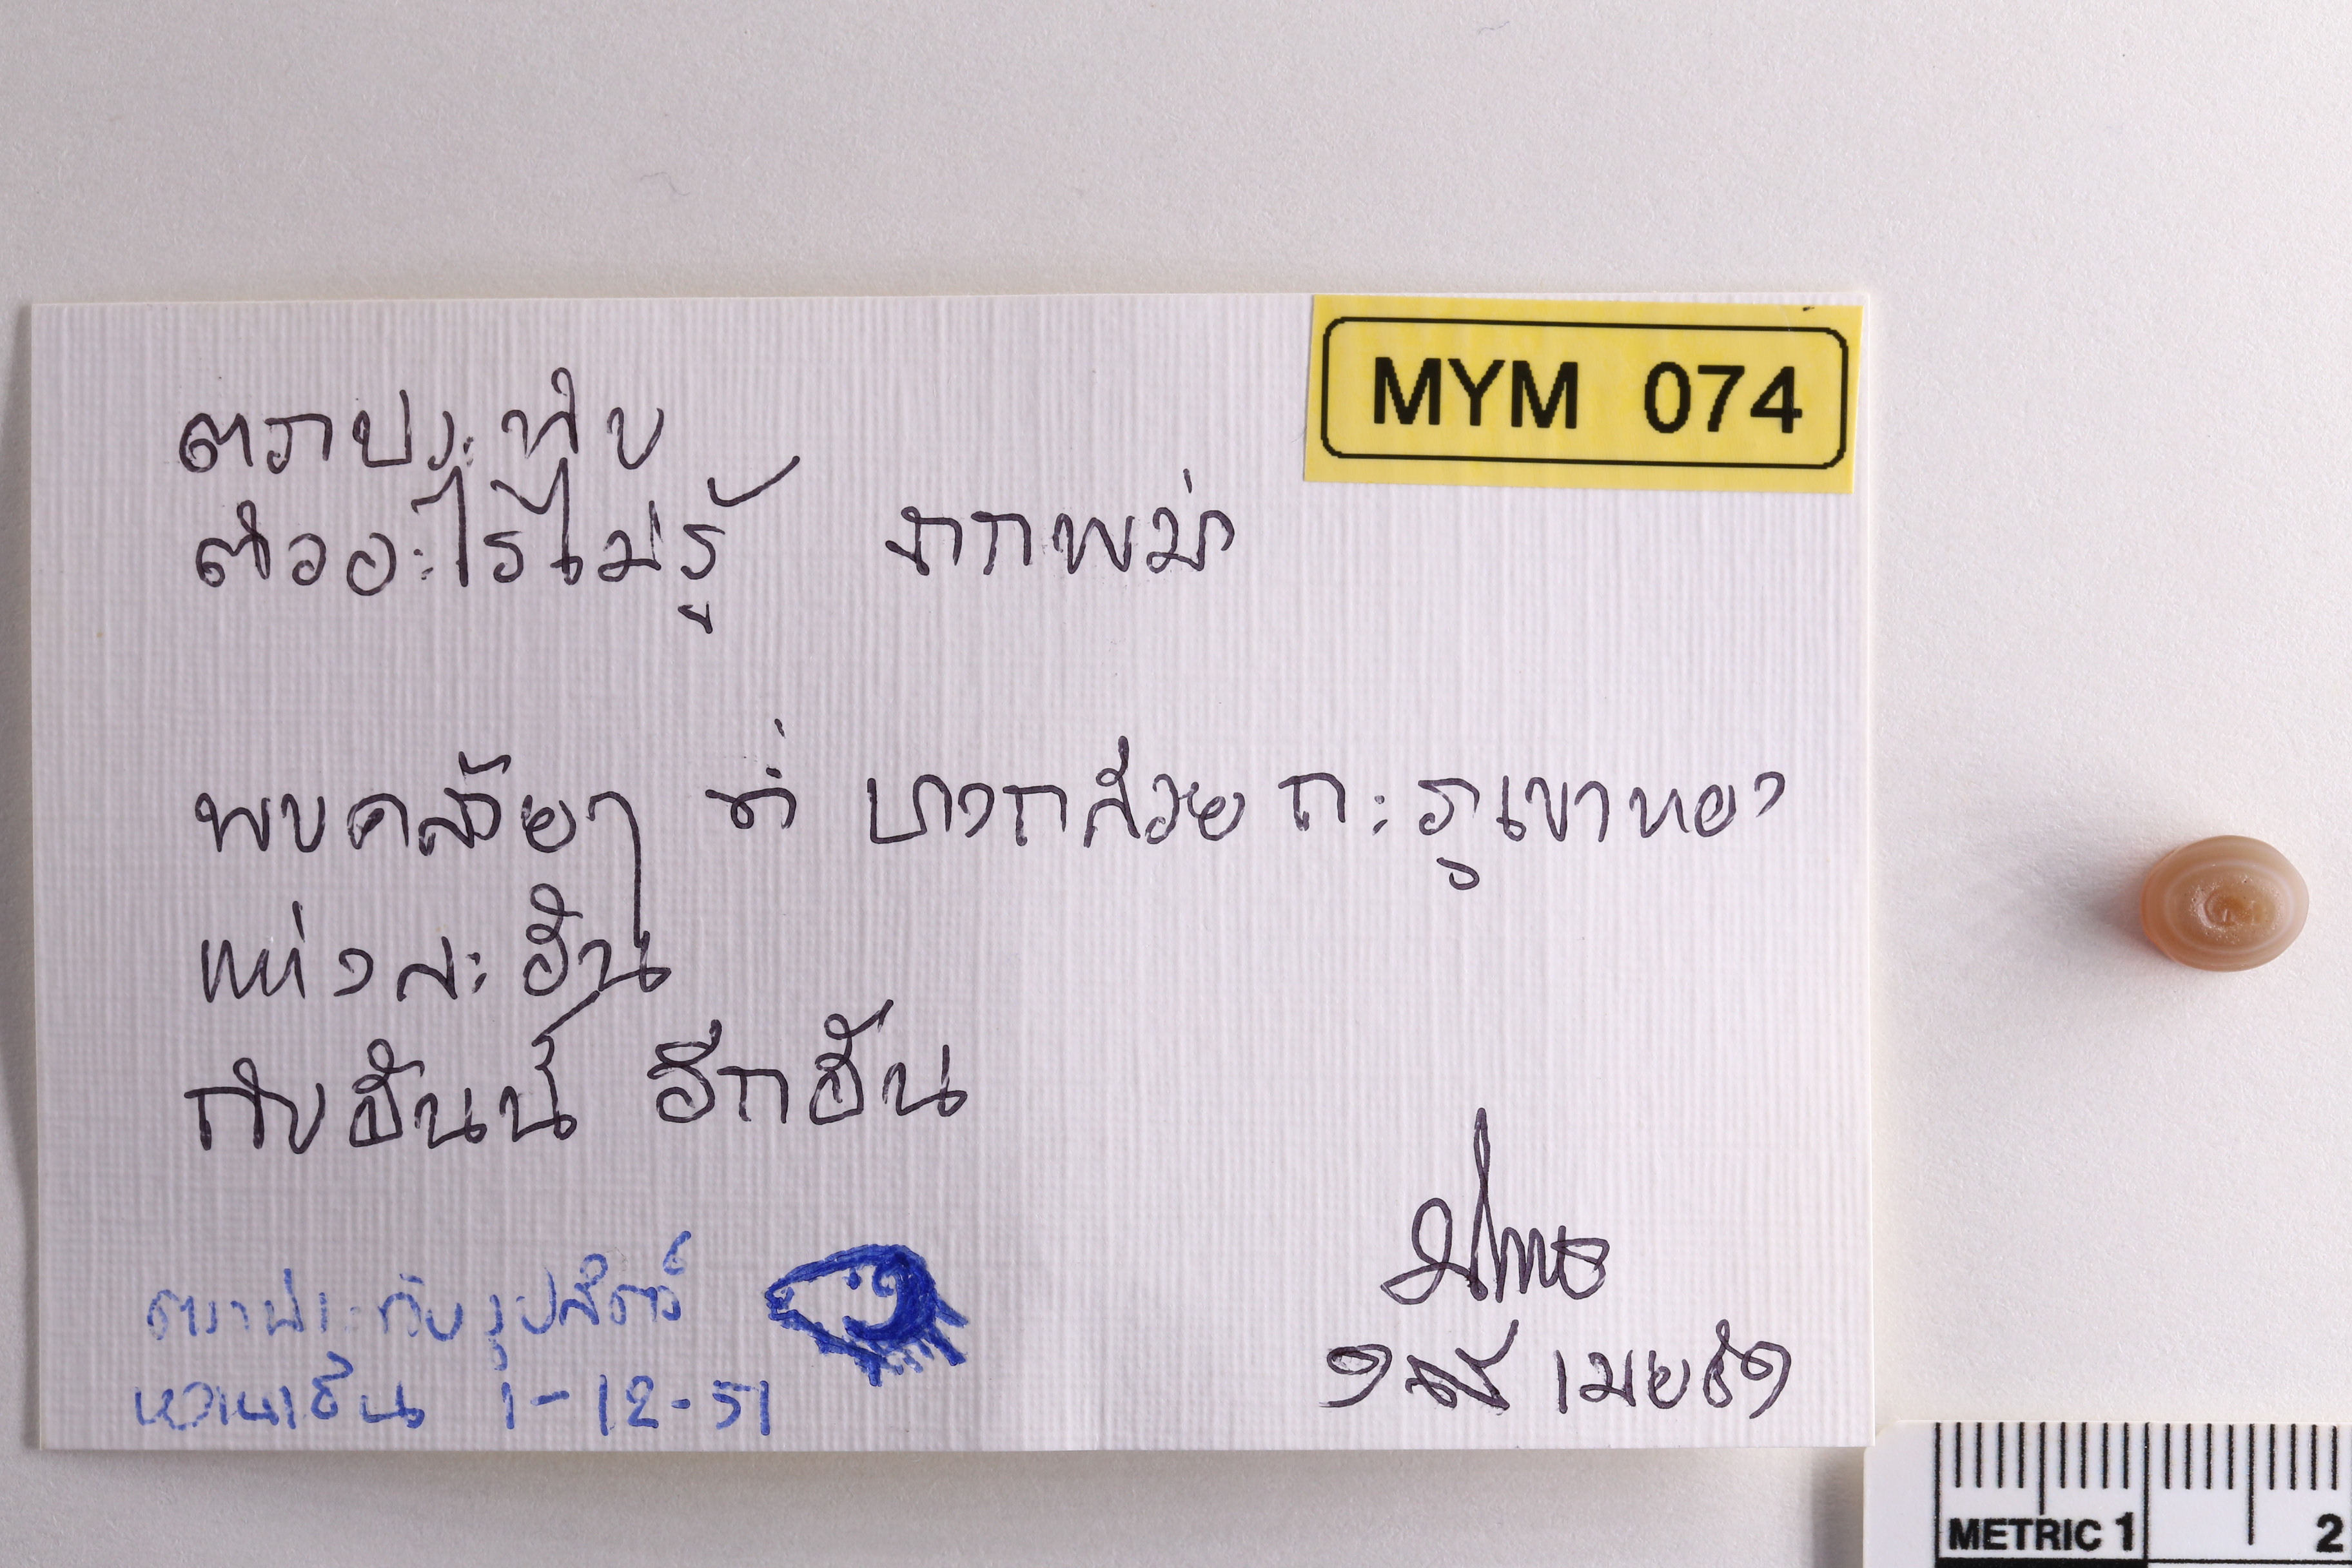 MYM 074
ตราประทับ
ตัวอะไรไม่รู้ จากพม่า
พบคล้ายๆ ที่ บางกล้วย กะ ภูเขาทอง
แห่งละอัน
กับอันนี้ อีกอัน
ตราประทับรูปสัตว์
1-12-51
เมย
METRIC 1 2